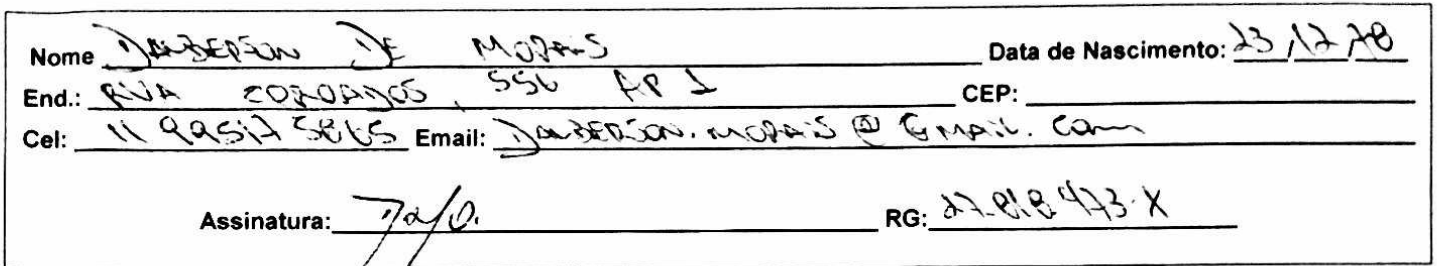 Nome DALBERSON DE MORAIS Data de Nascimento: 23/12/78
End.: RUA COROADOS, 556 AP 1 CEP:
Cel: 11 99517 5865 Email: DALBERSON.MORAIS@GMAIL.COM
Assinatura: RG: 27.818.473-X